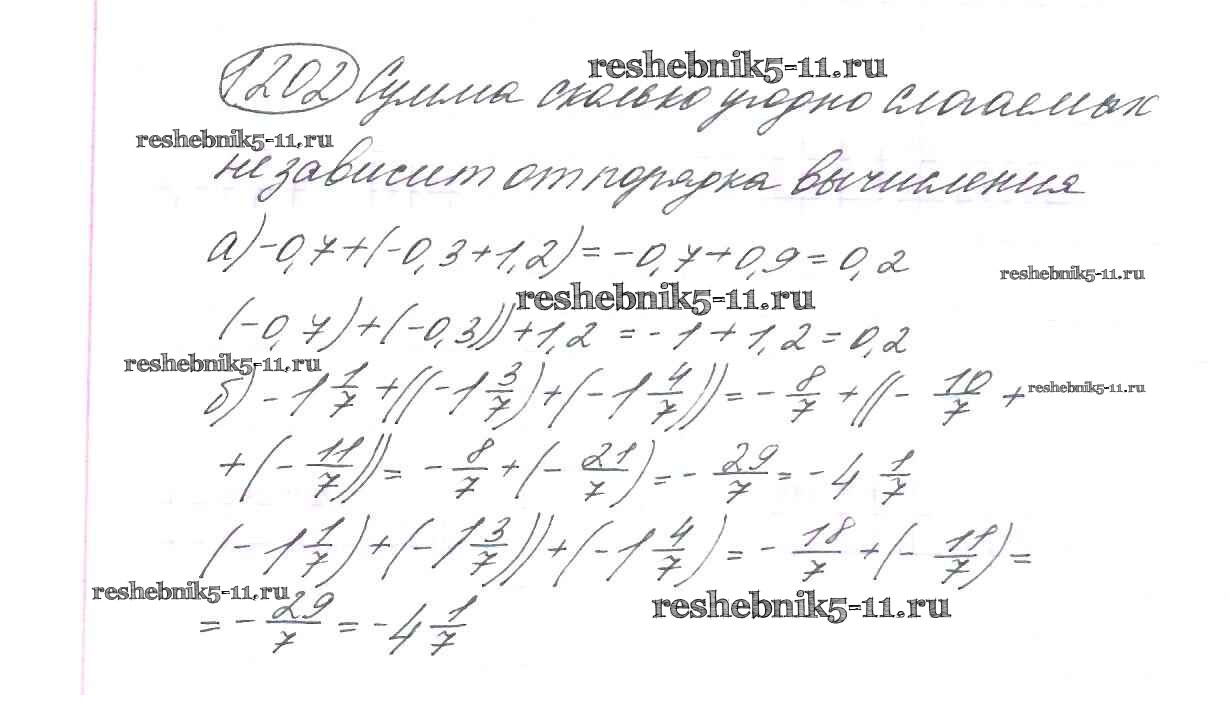 reshebnik5-11.ru
1202 Сумма сколько угодно слагаемых
reshebnik5-11.ru
не зависит от порядка вычисления
а) -0,7+(-0,3+1,2)=-0,7+0,9=0,2
reshebnik5-11.ru
reshebnik5-11.ru
(-0,7)+(-0,3))+1,2=-1+1,2=0,2
reshebnik5-11.ru
б) -1 1/7+((-1 3/7)+(-1 4/7))=-8/7+((-10/7+
reshebnik5-11.ru
+(-11/7))=-8/7+(-21/7)=-29/7=-4 1/7
(-1 1/7)+(-1 3/7))+(-1 4/7)=-18/7+(-11/7)=
reshebnik5-11.ru
reshebnik5-11.ru
=-29/7=-4 1/7